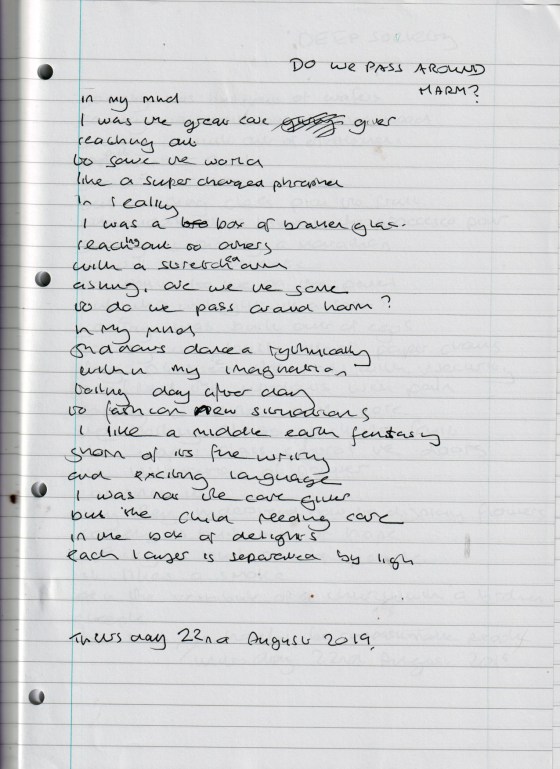 DO WE PASS AROUND
HARM?
in my mind
I was the great care giver
reaching out
to save the world
like a super charged
in reality
I was a box of broken glass.
reaching out to others
with a stretched arm
asking, are we the same
so do we pass around harm?
in my mind
shadows danced rythmically
within my imagination
toiling day after day
to fashion new situations
I like a middle earth fantasy
shorn of its fine writing
and exciting language
I was not the care giver
but the child needing care
in the box of delights
each layer is separated by ligh
Thursday 22nd August 2019.